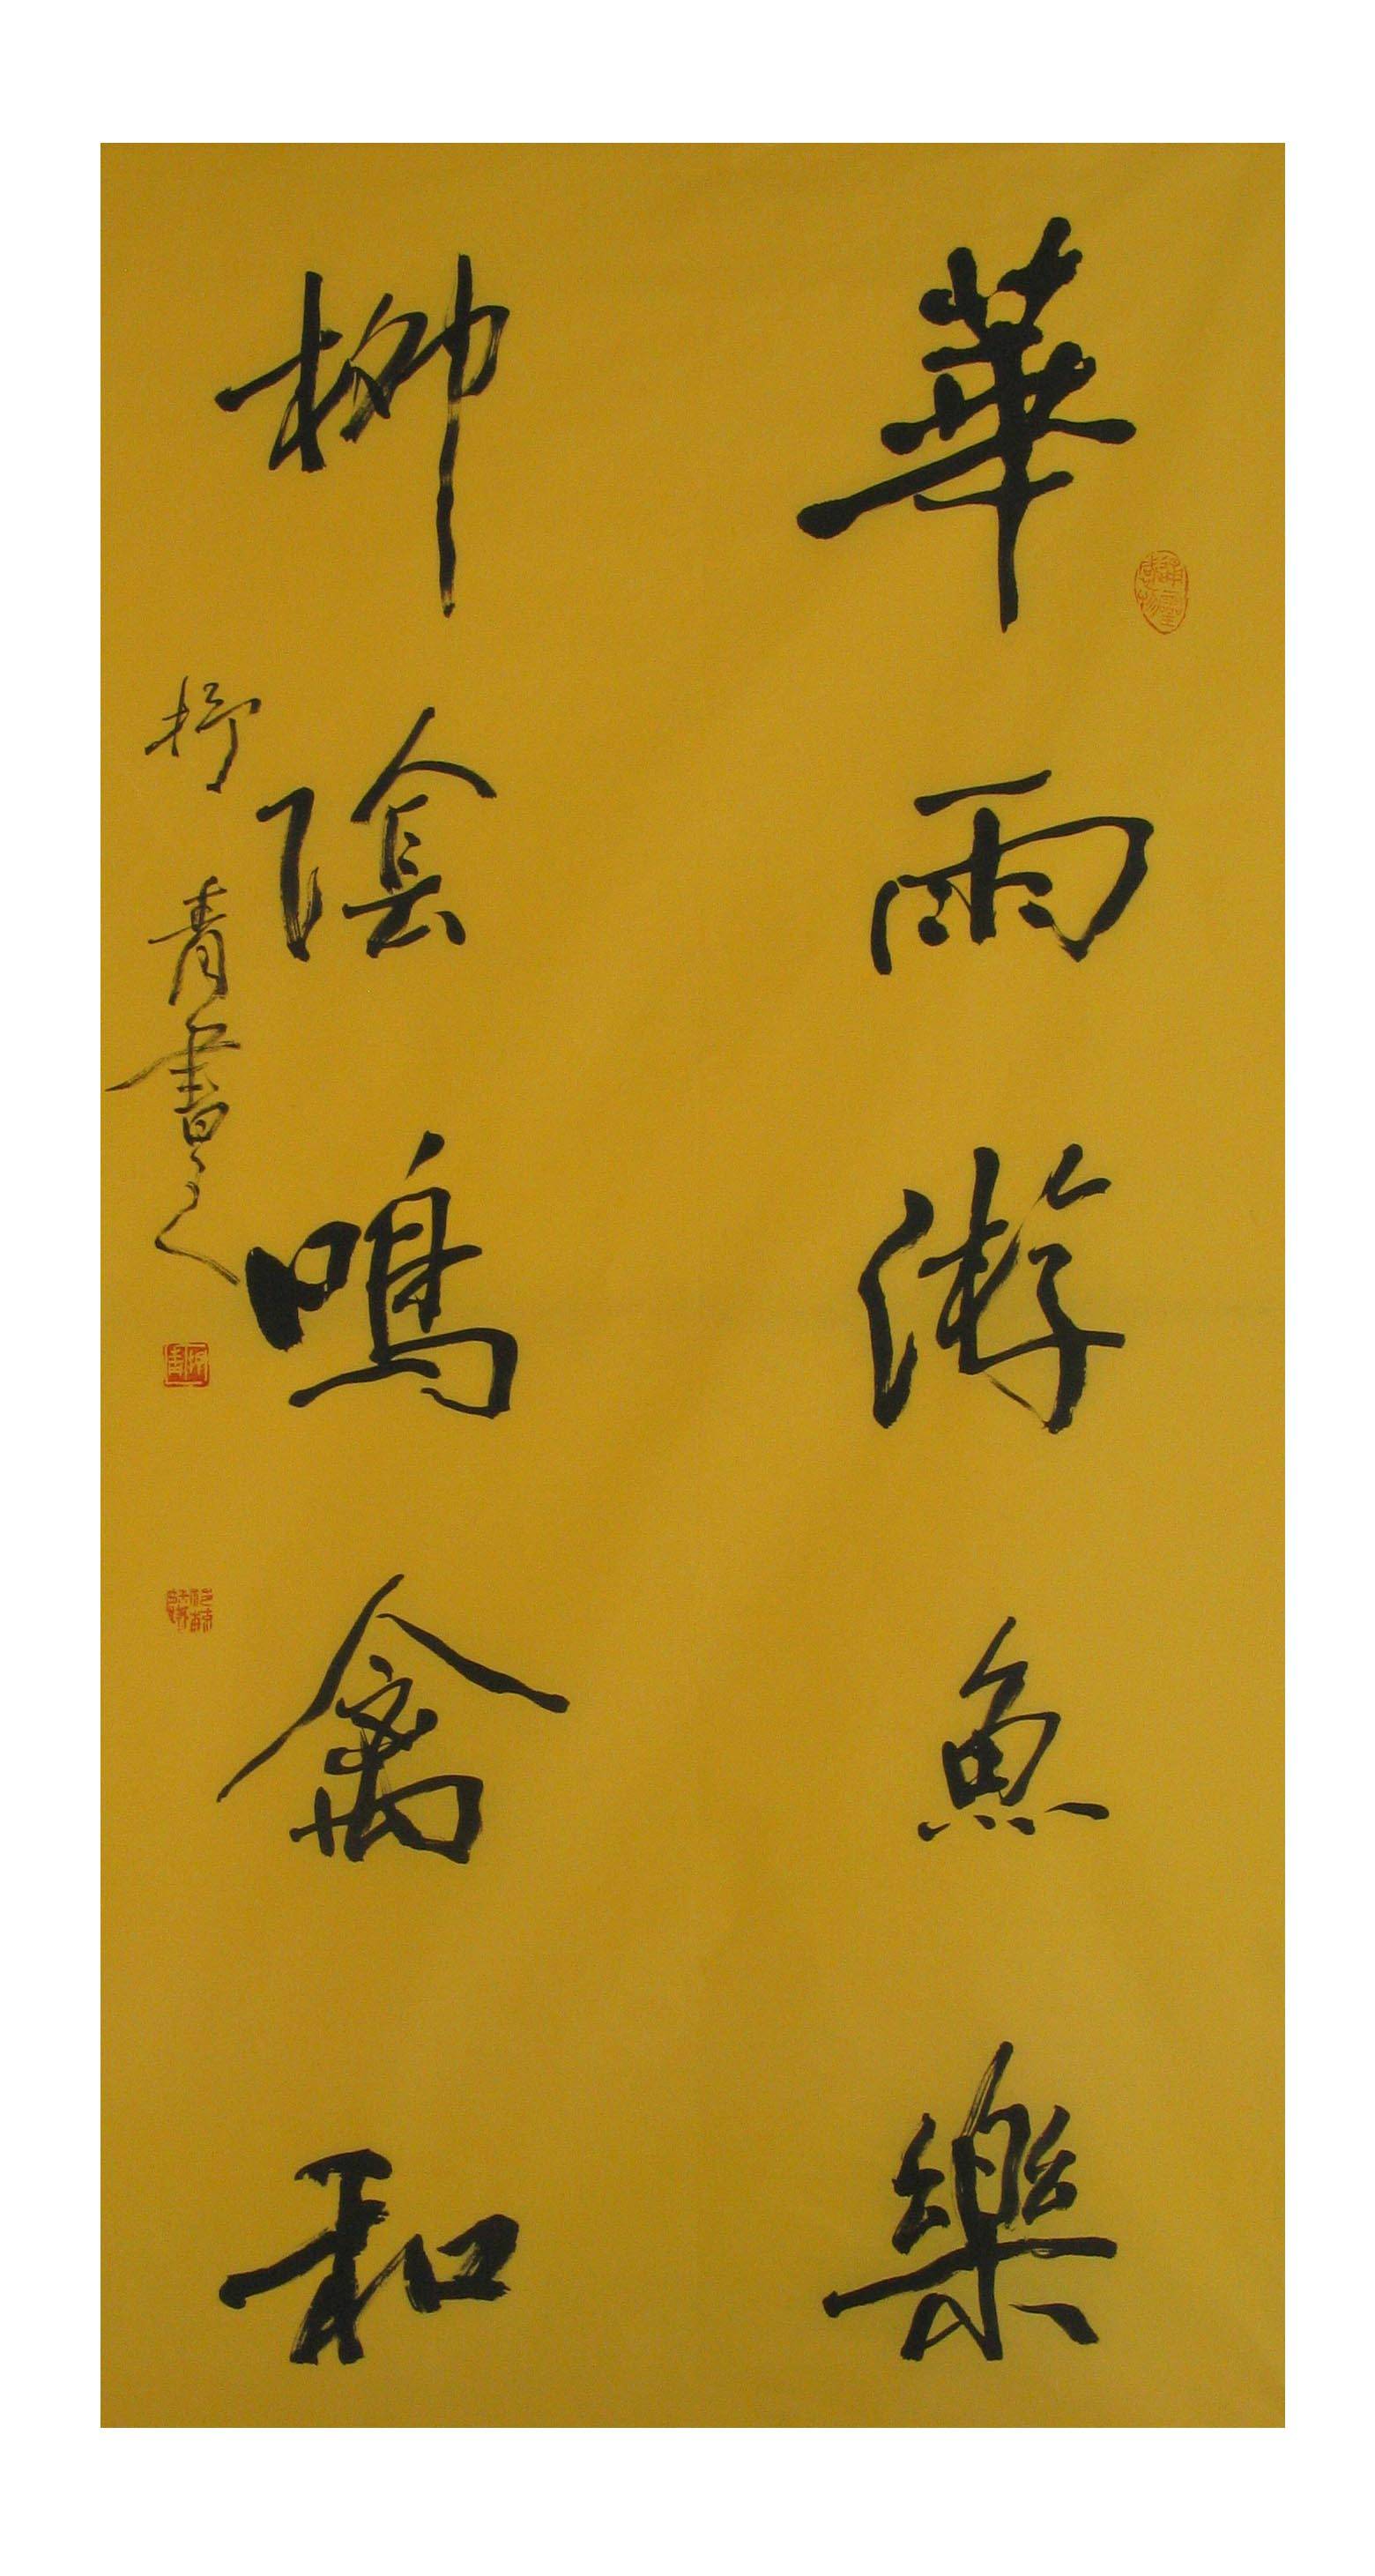 華雨游魚樂
柳陰鳴禽和
抒青書之